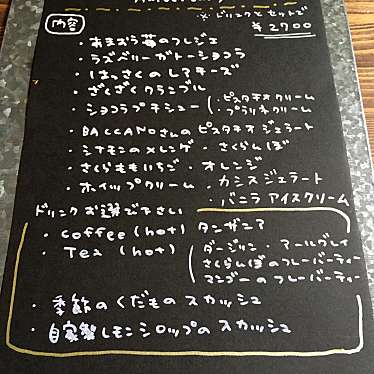 ※ドリンクとセットで
内容 ¥2700
・あまおう苺のフレジエ
・ラズベリーガトーショコラ
・はっさくのレアチーズ
・ざくざくクランブル
・ショコラプチシュー(・ピスタチオクリーム
・プラリネクリーム
・BACCANOさんのピスタチオジェラート
・シナモンのメレンゲ ・さくらんぼ
・さくらももいちご ・オレンジ
・ホイップクリーム ・カシスジェラート
・バニラアイスクリーム
ドリンクお選び下さい
・coffee(hot) タンザニア
・Tea(hot) (ダージリン・アールグレイ
さくらんぼのフレーバーティー
マンゴーのフレーバーティー
・季節のくだものスカッシュ
・自家製レモンシロップのスカッシュ